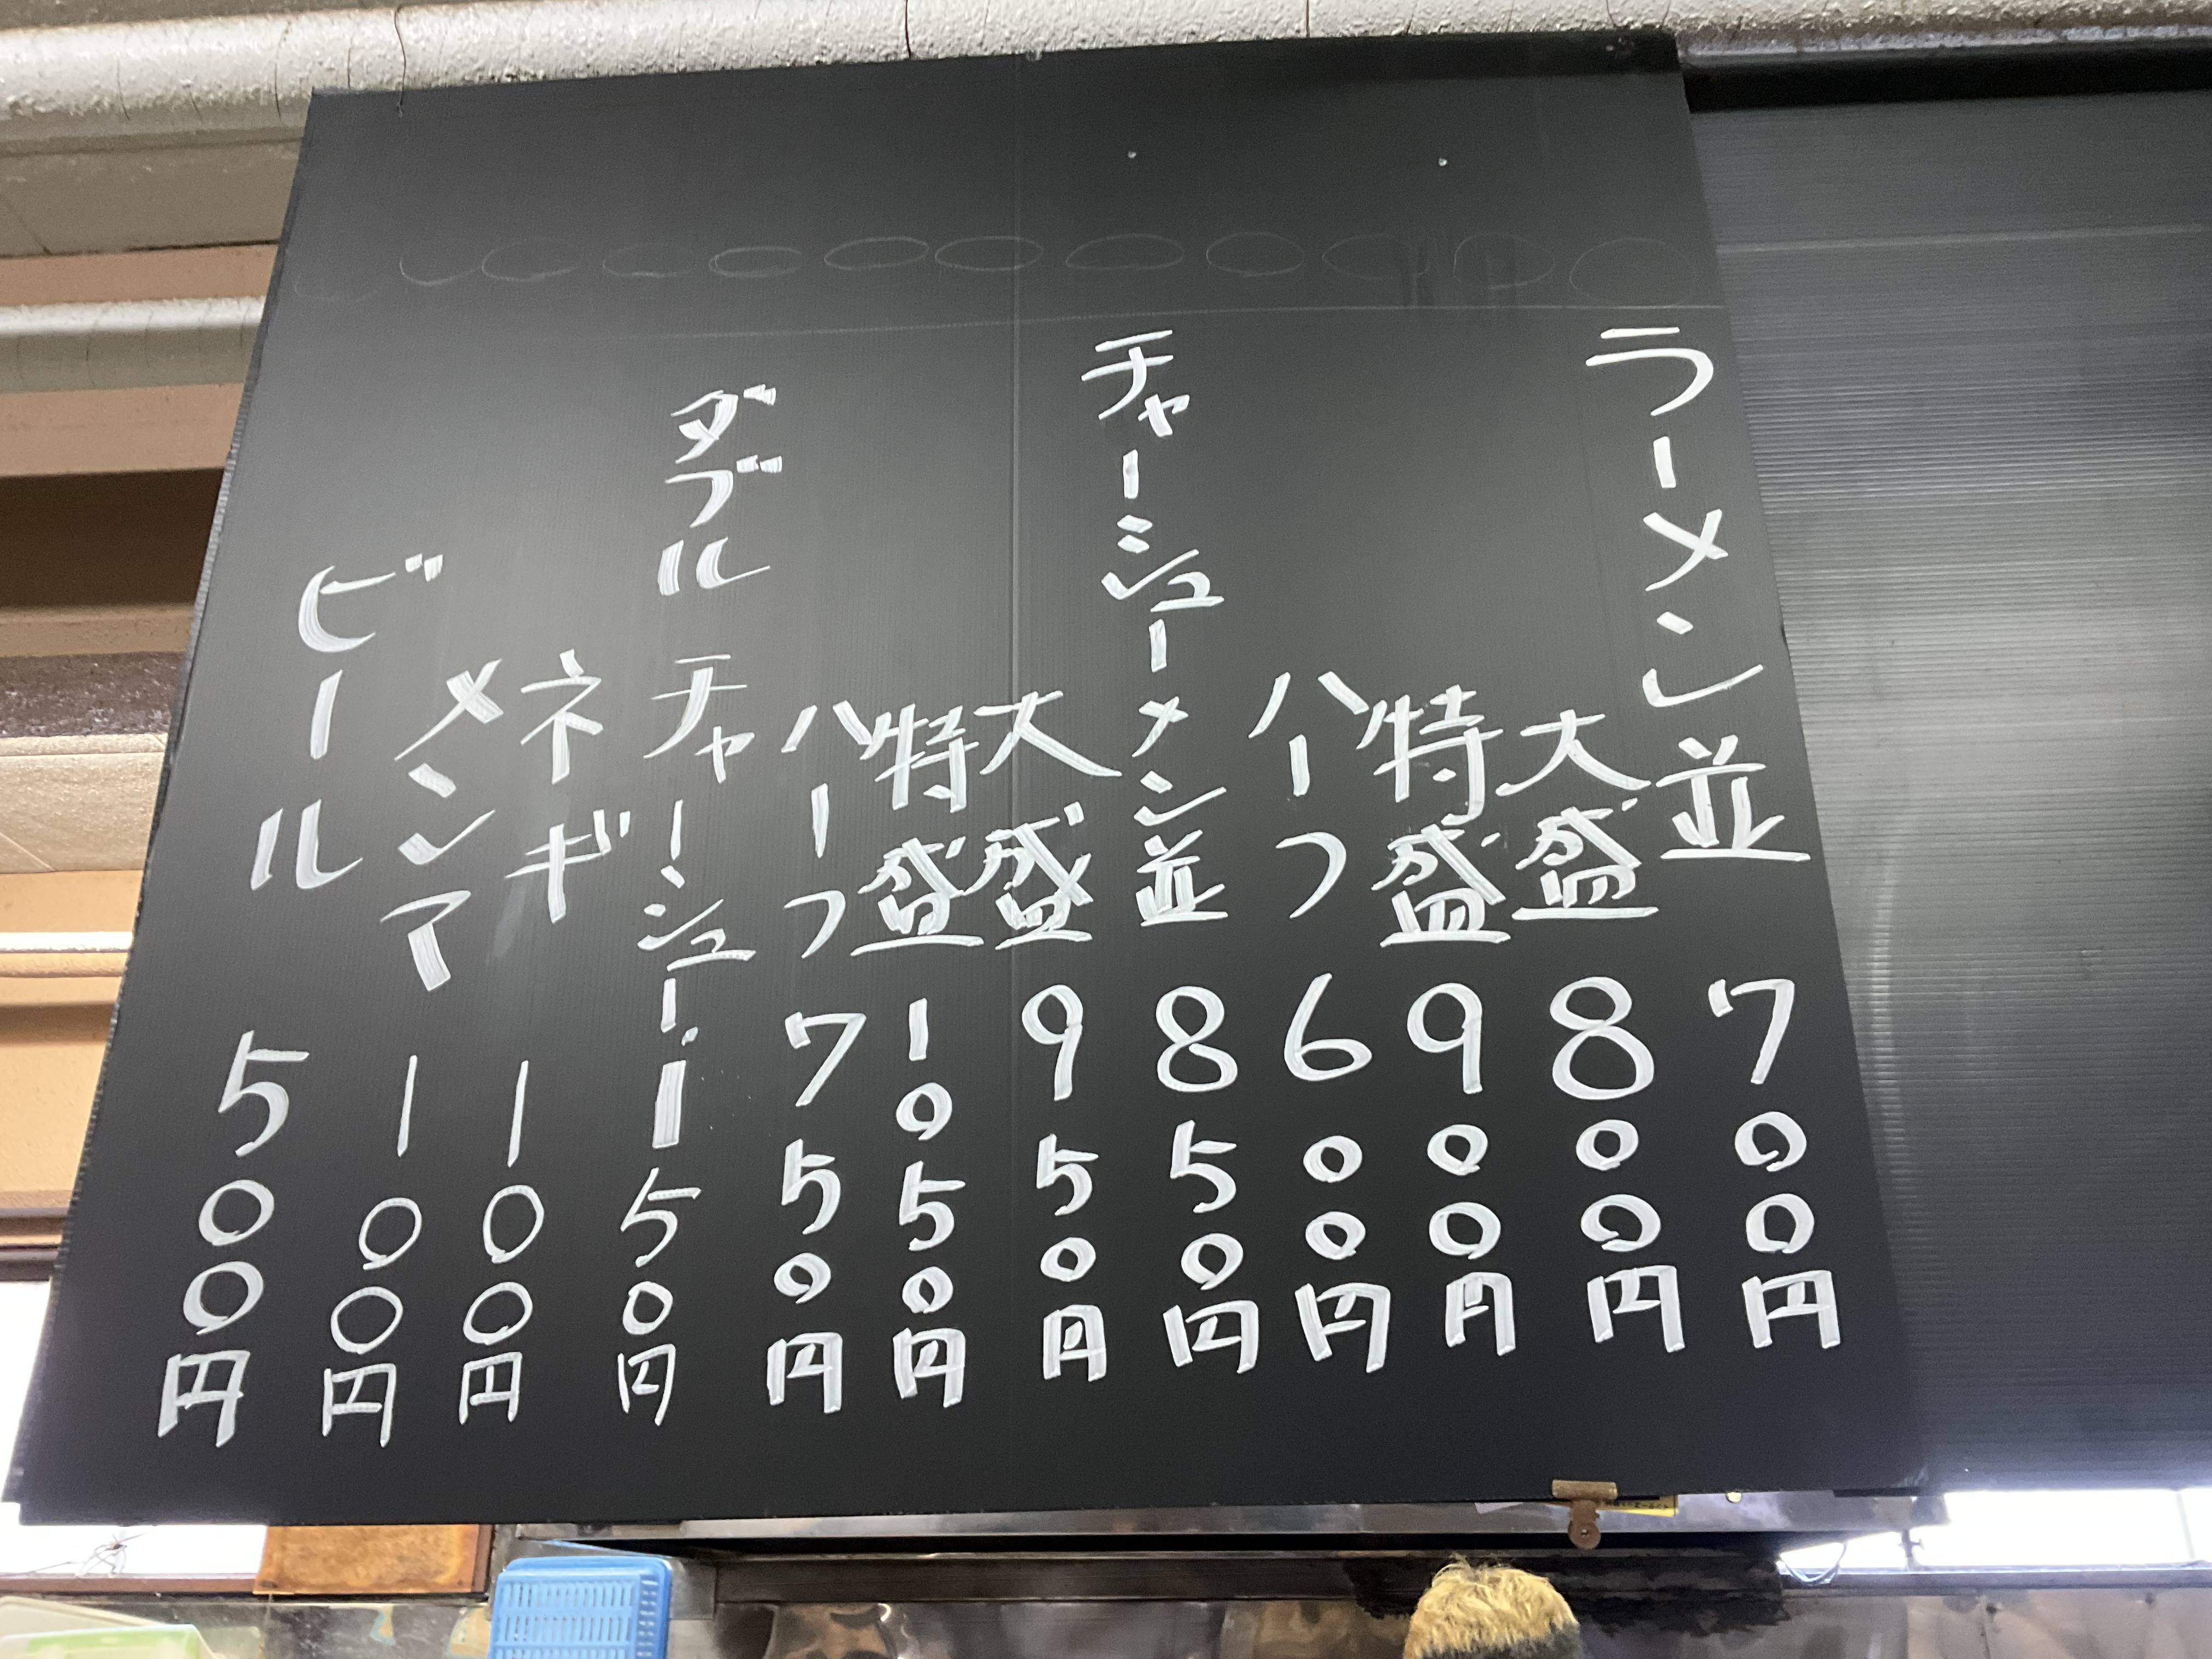 ラーメン並 700円
大盛 800円
特盛 900円
ハーフ 600円
チャーシューメン並 850円
大盛 950円
特盛 1050円
ハーフ 750円
ダブルチャーシュー 1150円
ネギ 100円
メンマ 100円
ビール 500円